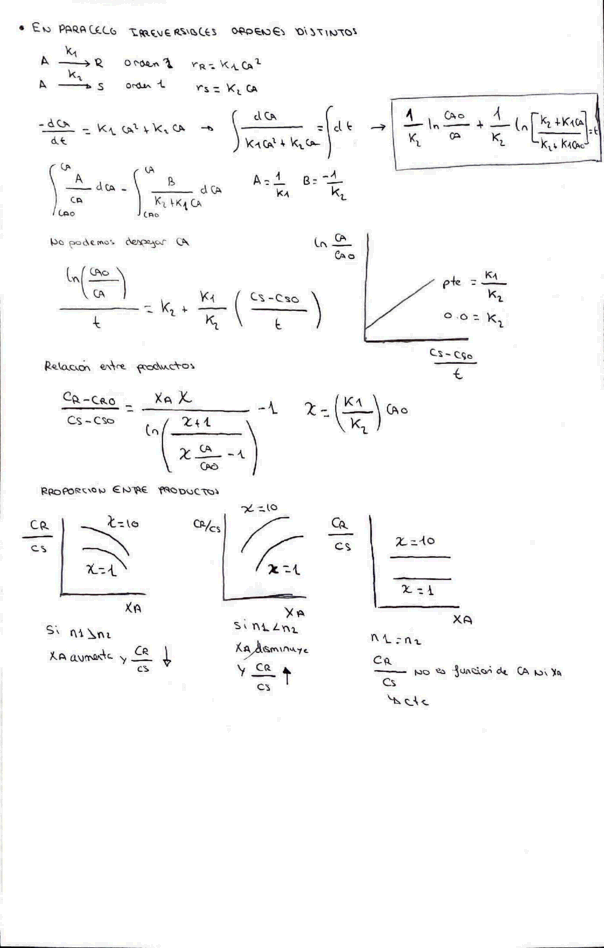 • EN PARALELO IRREVERSIBLES ORDENES DISTINTOS
A —K1→ R orden 2 rR = K1 CA²
A —K2→ S orden 1 rS = K2 CA
-dCA/dt = K1 CA² + K2 CA → ∫ dCA/(K1CA² + K2 CA) = ∫ dt → 1/K2 ln CAO/CA + 1/K2 ln [K2 + K1CA / K2 + K1CAO] = t
∫CAO^CA A/CA dCA - ∫CAO^CA B/(K2 + K1 CA) dCA A = 1/K1 B = -1/K2
No podemos despejar CA
ln(CAO/CA)/t = K2 + K1/K2 (CS-CSO/t)
ln CA/CAO
pte = K1/K2
0.0 = K2
CS-CSO/t
Relación entre productos
CR-CRO/CS-CSO = XA X / ln(X+1 / X CA/CAO - 1) - 1 X = (K1/K2) CAO
PROPORCION ENTRE PRODUCTOS
CR/CS X=10 X=1 XA
CR/CS X=10 X=1 XA
CR/CS X=10 X=1 XA
Si n1>n2
XA aumenta y CR/CS ↓
Si n1<n2
XA disminuye
y CR/CS ↑
n1=n2
CR/CS no es funcion de CA ni XA
↳ cte